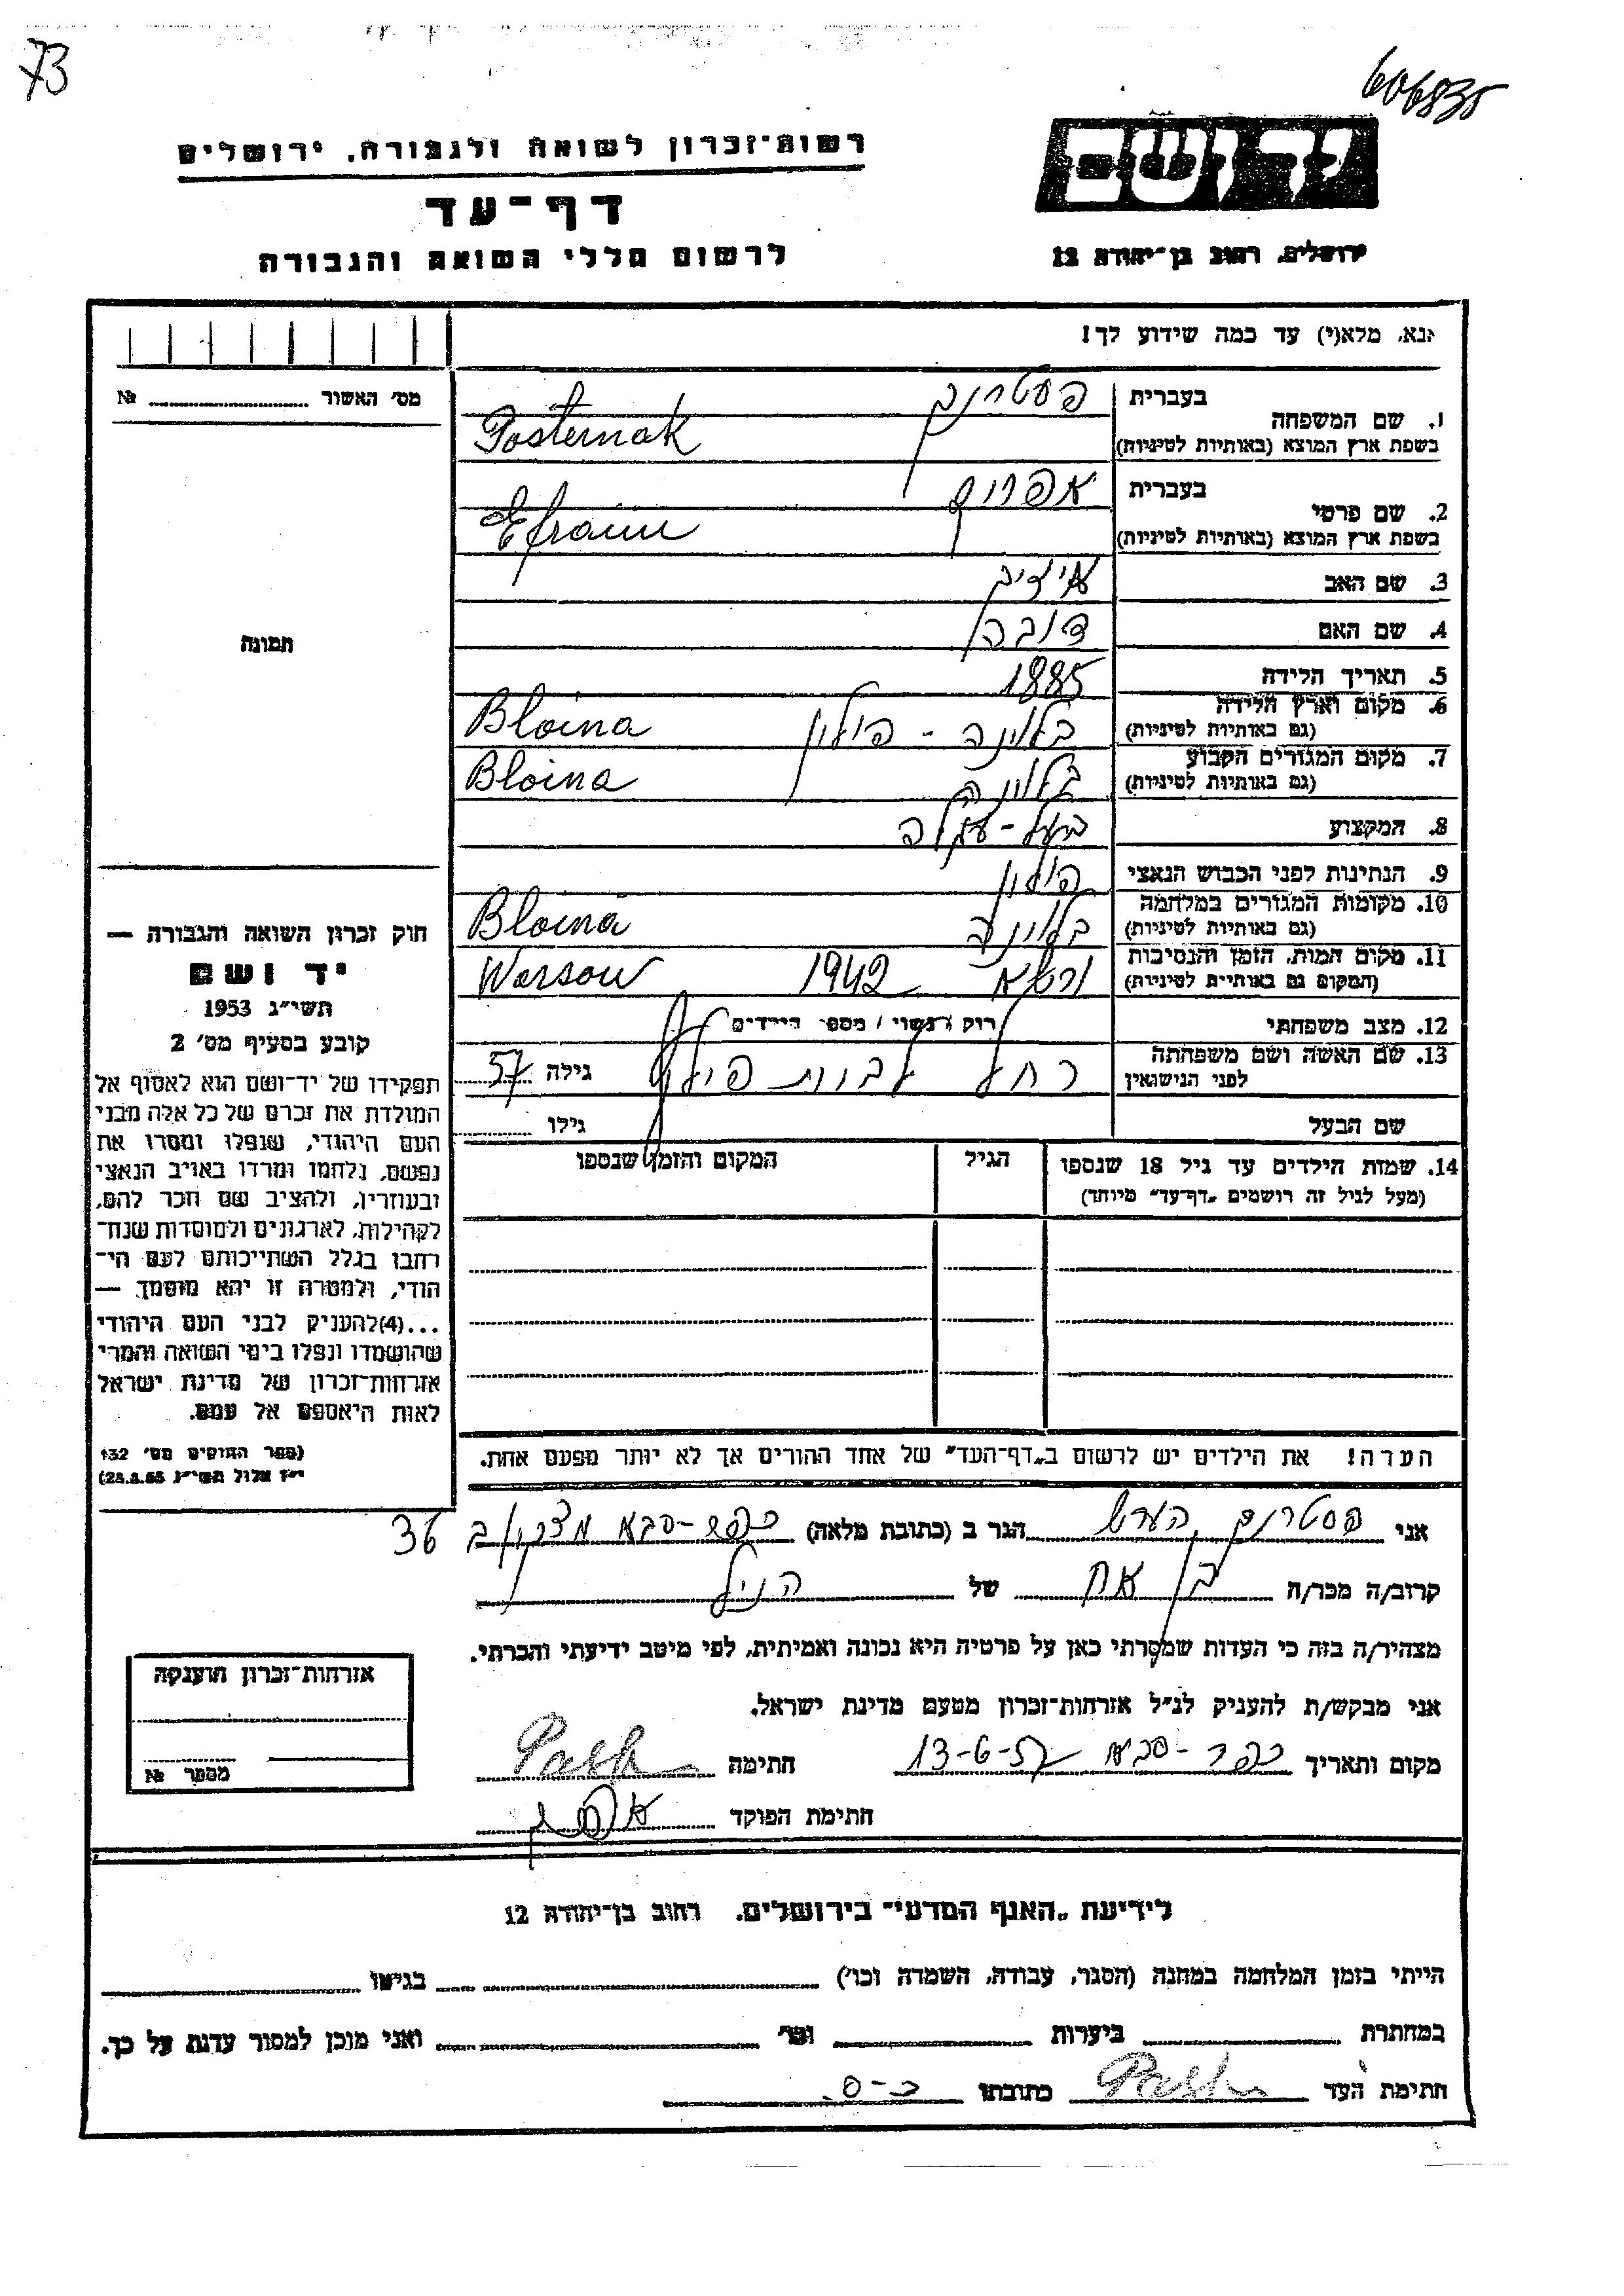 73
606835
יד ושם
רשות-זכרון לשואה ולגבורה, ירושלים
דף-עד
לרשום חללי השואה והגבורה
ירושלים, רחוב בן-יהודה 12
נא, מלא(י) עד כמה שידוע לך!
מס' האשור № 
1. שם המשפחה בעברית פסטרנק
בשפת ארץ המוצא (באותיות לטיניות) Posternak
2. שם פרטי בעברית אפרים
בשפת ארץ המוצא (באותיות לטיניות) Efraim
3. שם האב איציק
4. שם האם דובה
תמונה
5. תאריך הלידה 1885
6. מקום וארץ הלידה בלוינה - פולין Bloina
(גם באותיות לטיניות)
7. מקום המגורים הקבוע בלוינה Bloina
(גם באותיות לטיניות)
8. המקצוע בעל-עגלה
9. הנתינות לפני הכבוש הנאצי פולין
10. מקומות המגורים במלחמה בלוינה Bloina
(גם באותיות לטיניות)
11. מקום המות, הזמן והנסיבות ורשא 1942 Warsow
(המקום גם באותיות לטיניות)
12. מצב משפחתי רוק / נשוי / מספר הילדים
13. שם האשה ושם משפחתה רחל לבית גילה 57
לפני הנישואין
שם הבעל גילו
14. שמות הילדים עד גיל 18 שנספו הגיל המקום והזמן שנספו
(מעל לגיל זה רושמים "דף-עד" מיוחד)
חוק זכרון השואה והגבורה —
יד ושם
תשי"ג 1953
קובע בסעיף מס' 2
תפקידו של יד-ושם הוא לאסוף אל
המולדת את זכרם של כל אלה מבני
העם היהודי, שנפלו ומסרו את
נפשם, נלחמו ומרדו באויב הנאצי
ובעוזריו, ולהציב שם וזכר להם,
לקהילות, לארגונים ולמוסדות שנח-
רחבו בגלל השתייכותם לעם הי-
הודי, ולמטרה זו יהא מוסמך —
...(4)להעניק לבני העם היהודי
שהושמדו ונפלו בימי השואה והמרי
אזרחות-זכרון של מדינת ישראל
לאות היאספם אל עמם.
(ספר החוקים מס' 132
י"ז אלול תשי"ג 28.8.53)
הערה! את הילדים יש לרשום ב"דף-העד" של אחד ההורים אך לא יותר מפעם אחת.
אני פסטרנק הערש הגר ב (כתובת מלאה) כפר-סבא 36
קרוב/ה מכר/ה בן אח של הנ"ל
מצהיר/ה בזה כי העדות שמסרתי כאן על פרטיה היא נכונה ואמיתית, לפי מיטב ידיעתי והכרתי.
אני מבקש/ת להעניק לנ"ל אזרחות-זכרון מטעם מדינת ישראל.
מקום ותאריך כפר-סבא 13-6-57 חתימה
חתימת הפוקד
אזרחות-זכרון הוענקה
מספר №
לידיעת "האגף המדעי" בירושלים, רחוב בן-יהודה 12
הייתי בזמן המלחמה במחנה (הסגר, עבודה, השמדה וכו') בגיטו
במחתרת ביערות וכו' ואני מוכן למסור עדות על כך.
חתימת העד כתובתו כ-ס.